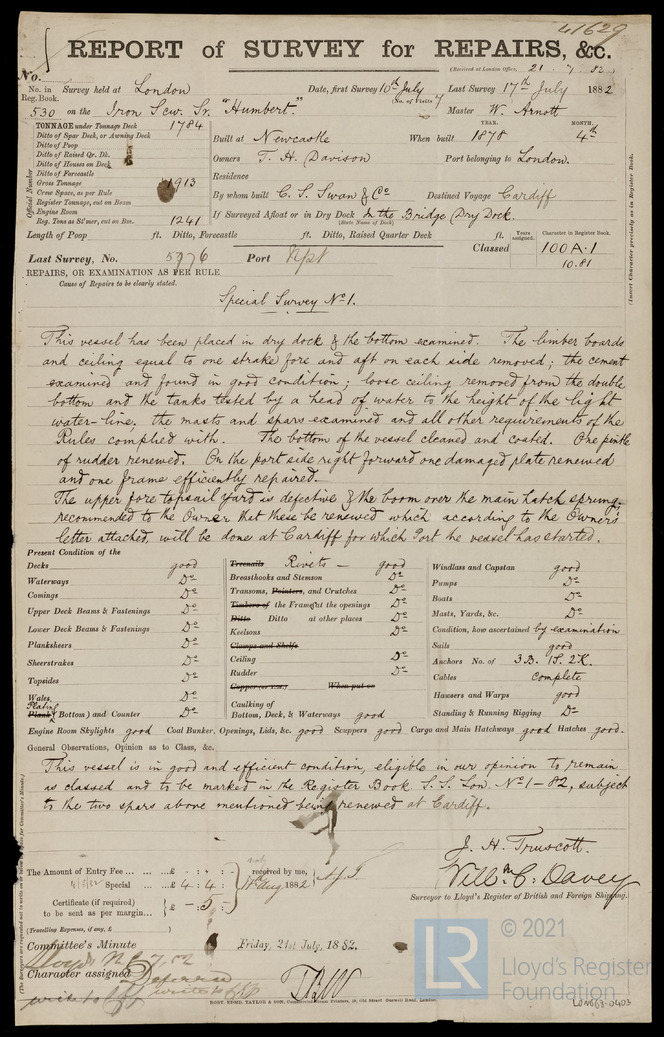 41629
REPORT of SURVEY for REPAIRS, &c.
(Received at London Office, 21 . 7 . 82
No.
No. in Reg. Book. Survey held at London Date, first Survey 10th July Last Survey 17th July 1882
(No. of Visits 7
530 on the Iron Scw. Sr. "Humbert." Master W. Arnott
TONNAGE under Tonnage Deck 1784
Ditto of Spar Deck, or Awning Deck
Ditto of Poop
Ditto of Raised Qr. Dk.
Ditto of Houses on Deck
Ditto of Forecastle
Gross Tonnage 1913
Crew Space, as per Rule
Register Tonnage, cut on Beam
Engine Room
Reg. Tons as St'mer, cut on Bm. 1241
Official Number
YEAR. MONTH.
Built at Newcastle When built 1878 4th
Owners T. H. Davison Port belonging to London.
Residence
By whom built C. S. Swan & Co Destined Voyage Cardiff
If Surveyed Afloat or in Dry Dock In the Bridge Dry Dock.
(State Name of Dock)
Length of Poop ft. Ditto, Forecastle ft. Ditto, Raised Quarter Deck ft.
Years assigned. Character in Register Book.
Classed 100A.1
10.81
(Insert Character precisely as in Register Book.
Last Survey, No. 5976 Port Npt
REPAIRS, OR EXAMINATION AS PER RULE
Cause of Repairs to be clearly stated.
Special Survey No. 1.
This vessel has been placed in dry dock & the bottom examined. The limber boards
and ceiling equal to one strake fore and aft on each side removed; the cement
examined and found in good condition; loose ceiling removed from the double
bottom and the tanks tested by a head of water to the height of the light
water-line; the masts and spars examined and all other requirements of the
Rules complied with. The bottom of the vessel cleaned and coated. One pintle
of rudder renewed. On the port side right forward one damaged plate renewed
and one frame efficiently repaired.
The upper fore topsail yard is defective & the boom over the main hatch sprung;
recommended to the Owner that these be renewed which according to the Owner's
letter attached, will be done at Cardiff for which Port the vessel has started.
Present Condition of the
Decks good
Waterways Do
Comings Do
Upper Deck Beams & Fastenings Do
Lower Deck Beams & Fastenings Do
Planksheers Do
Sheerstrakes Do
Topsides Do
Wales Do
Plating
Plank (Bottom) and Counter Do
Treenails Rivets — good
Breasthooks and Stemson Do
Transoms, Pointers, and Crutches Do
Timbers of the Frame at the openings Do
Ditto Ditto at other places Do
Keelsons Do
Clamps and Shelfs
Ceiling Do
Rudder Do
Copper (or Y.M.) When put on
Caulking of
Bottom, Deck, & Waterways good
Windlass and Capstan good
Pumps Do
Boats Do
Masts, Yards, &c. Do
Condition, how ascertained by examination
Sails good
Anchors No. of 3 B. 1 S. 2 K.
Cables complete
Hawsers and Warps good
Standing & Running Rigging Do
Engine Room Skylights good Coal Bunker, Openings, Lids, &c. good Scuppers good Cargo and Main Hatchways good Hatches good.
General Observations, Opinion as to Class, &c.
This vessel is in good and efficient condition, eligible in our opinion to remain
as classed and to be marked in the Register Book S.S. Lon. No 1 – 82, subject
to the two spars above mentioned being renewed at Cardiff.
J. H. Truscott.
Willm. C. Davey
Surveyor to Lloyd's Register of British and Foreign Shipping.
The Amount of Entry Fee ... ... £ . : . :
Special ... ... £ 4 : 4 :
Certificate (if required) to be sent as per margin... £ – : 5 :
received by me,
Aug 1882
(Travelling Expenses, if any, £
Committee's Minute Friday, 21st July, 1882.
Character assigned Deferred
ROBT. EDMD. TAYLOR & SON,
LR
© 2021
Lloyd's Register
Foundation
LON663-0403